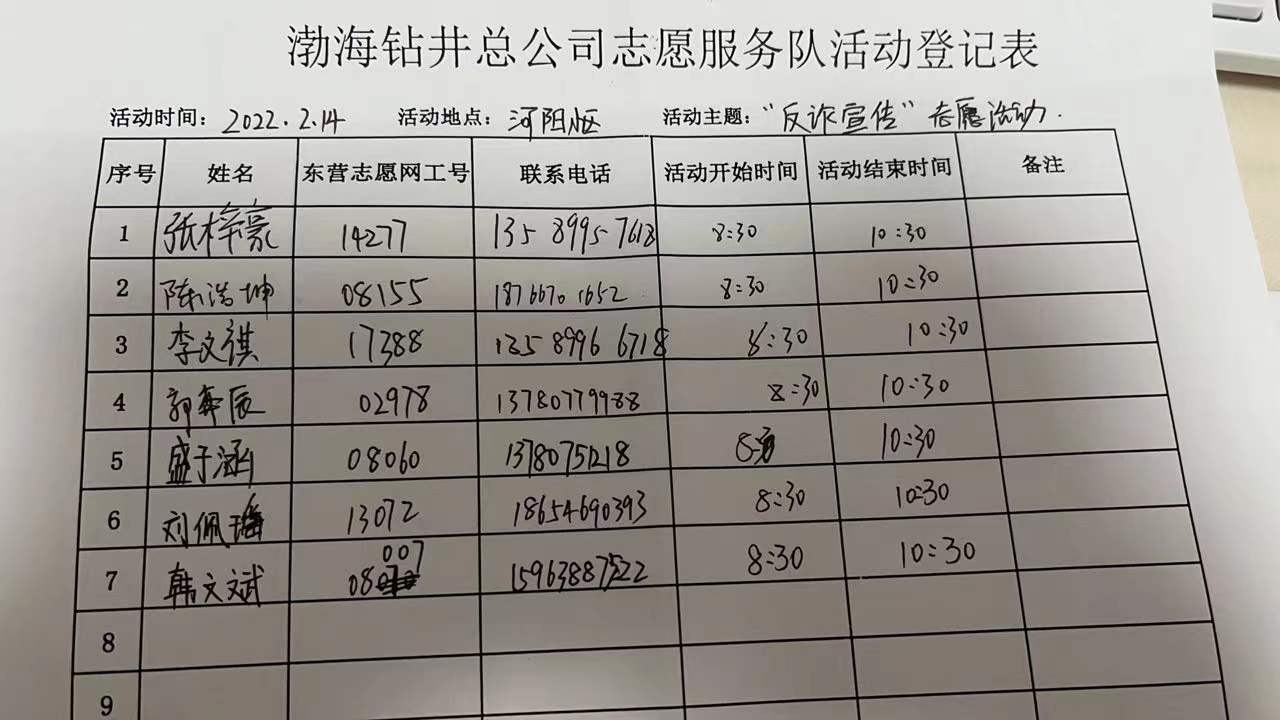 渤海钻井总公司志愿服务队活动登记表
活动时间：2022.2.14 活动地点：河阳 活动主题："反诈宣传"志愿活动.
序号 姓名 东营志愿网工号 联系电话 活动开始时间 活动结束时间 备注
1 张梓豪 14277 135 8995 7618 8:30 10:30
2 陈浩坤 08155 1876670 1652 8:30 10:30
3 李文祺 17388 1358996 6718 8:30 10:30
4 郭奔辰 02978 13780779988 8:30 10:30
5 盛于涵 08060 8:30 10:30
6 刘佩瑶 13072 18654690393 8:30 10:30
7 韩文斌 08007 15963887522 8:30 10:30
8
9